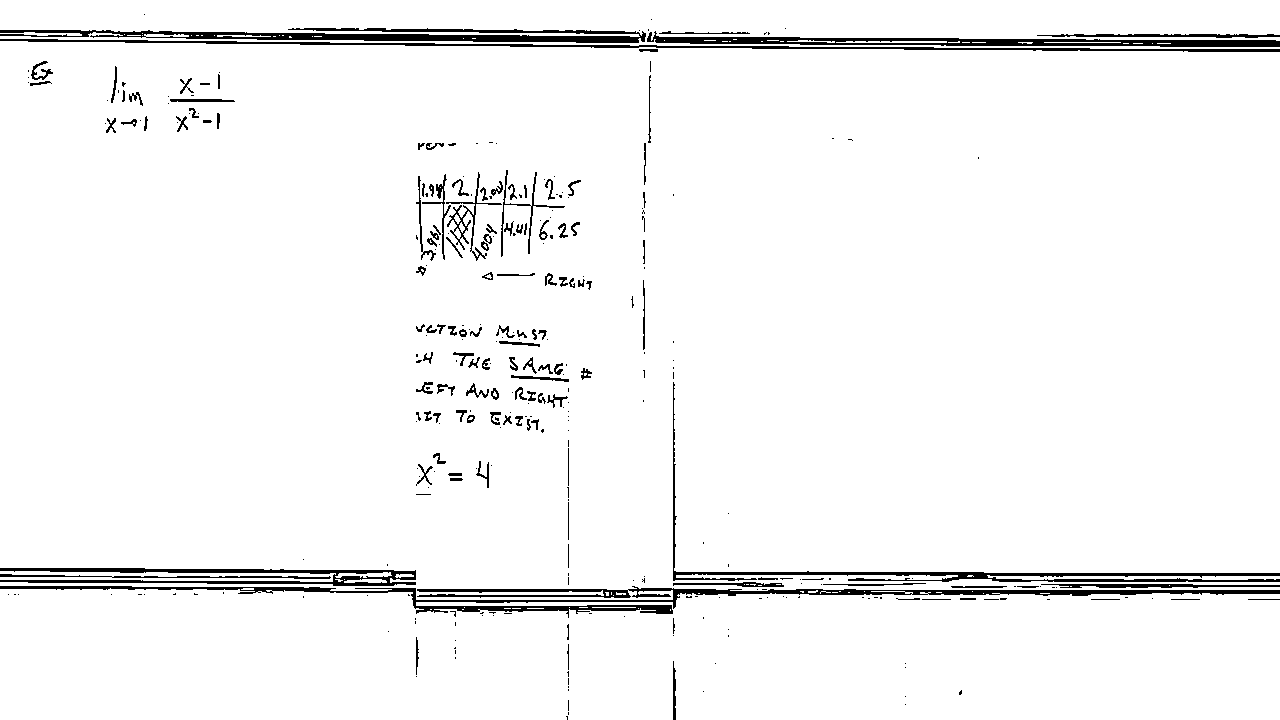 Ex lim x→1 (x-1)/(x²-1)
2 | 2.001 | 2.1 | 2.5
3.961 | 4.004 | 4.41 | 6.25
← RIGHT
MUST
THE SAME #
AND RIGHT
TO EXIST.
x² = 4